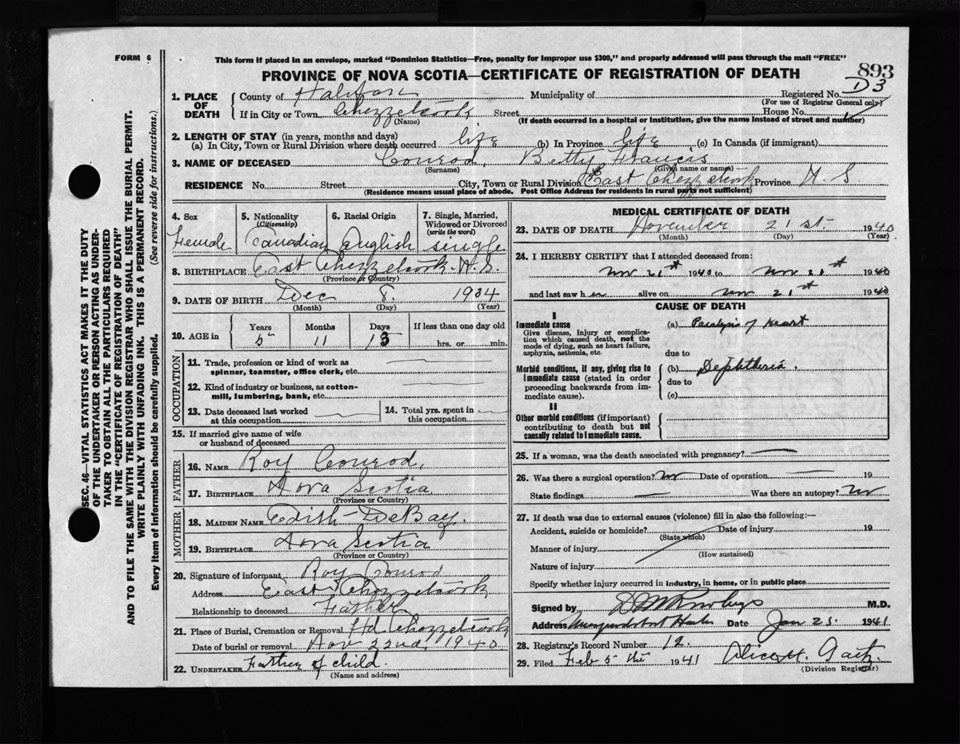 FORM 6
This form if placed in an envelope, marked "Dominion Statistics—Free, penalty for improper use $300," and properly addressed will pass through the mail "FREE"
PROVINCE OF NOVA SCOTIA—CERTIFICATE OF REGISTRATION OF DEATH
893
D3
1. PLACE OF DEATH
County of Halifax Municipality of Registered No.
(For use of Registrar General only)
If in City or Town Chezzetcook Street House No.
(Name) (If death occurred in a hospital or institution, give the name instead of street and number)
2. LENGTH OF STAY (in years, months and days)
(a) In City, Town or Rural Division where death occurred life (b) In Province life (c) In Canada (if immigrant)
3. NAME OF DECEASED Conrod, Betty Francis
(Surname) (Given name or names)
RESIDENCE No. Street City, Town or Rural Division East Chezzetcook Province N.S
(Residence means usual place of abode. Post Office Address for residents in rural parts not sufficient)
4. Sex 5. Nationality 6. Racial Origin 7. Single, Married,
(Citizenship) Widowed or Divorced
(write the word)
Female Canadian English single
8. BIRTHPLACE East Chezzetcook N.S.
(Province or Country)
9. DATE OF BIRTH Dec 8. 1934
(Month) (Day) (Year)
10. AGE in Years Months Days If less than one day old
5 11 13 hrs. or min.
OCCUPATION
11. Trade, profession or kind of work as
spinner, teamster, office clerk, etc.
12. Kind of industry or business, as cotton-
mill, lumbering, bank, etc.
13. Date deceased last worked
at this occupation
14. Total yrs. spent in
this occupation
15. If married give name of wife
or husband of deceased
FATHER
16. NAME Roy Conrod.
17. BIRTHPLACE Nova Scotia
(Province or Country)
MOTHER
18. MAIDEN NAME Edith DeBay
19. BIRTHPLACE Nova Scotia
(Province or Country)
20. Signature of informant Roy Conrod
Address East Chezzetcook
Relationship to deceased Father
21. Place of Burial, Cremation or Removal Hd. Chezzetcook
Date of burial or removal Nov 22nd, 1940
22. UNDERTAKER Father of child.
(Name and address)
MEDICAL CERTIFICATE OF DEATH
23. DATE OF DEATH November 21st. 1940
(Month) (Day) (Year)
24. I HEREBY CERTIFY that I attended deceased from:
Nov 21st 1940 to Nov 21st 1940
and last saw her alive on Nov 21st 1940
CAUSE OF DEATH
I
Immediate cause
Give disease, injury or complica-
tion which caused death, not the
mode of dying, such as heart failure,
asphyxia, asthenia, etc.
(a) Paralysis of Heart
due to
Morbid conditions, if any, giving rise to
immediate cause (stated in order
proceeding backwards from im-
mediate cause).
(b) Dephtheria.
due to
(c)
II
Other morbid conditions (if important)
contributing to death but not
causally related to immediate cause.
25. If a woman, was the death associated with pregnancy?
26. Was there a surgical operation? No Date of operation 19
State findings Was there an autopsy? No
27. If death was due to external causes (violence) fill in also the following:—
Accident, suicide or homicide? Date of injury 19
(State which)
Manner of injury
(How sustained)
Nature of injury
Specify whether injury occurred in industry, in home, or in public place
Signed by M.D.
Address Date Jan 23. 1941
28. Registrar's Record Number 12.
29. Filed Feb 5th 1941 Alice H. Gaetz
(Division Registrar)
SEC. 46—VITAL STATISTICS ACT MAKES IT THE DUTY
OF THE UNDERTAKER OR PERSON ACTING AS UNDER-
TAKER TO OBTAIN ALL THE PARTICULARS REQUIRED
IN THE "CERTIFICATE OF REGISTRATION OF DEATH"
AND TO FILE THE SAME WITH THE DIVISION REGISTRAR WHO SHALL ISSUE THE BURIAL PERMIT.
WRITE PLAINLY WITH UNFADING INK. THIS IS A PERMANENT RECORD.
Every item of information should be carefully supplied. (See reverse side for instructions.)